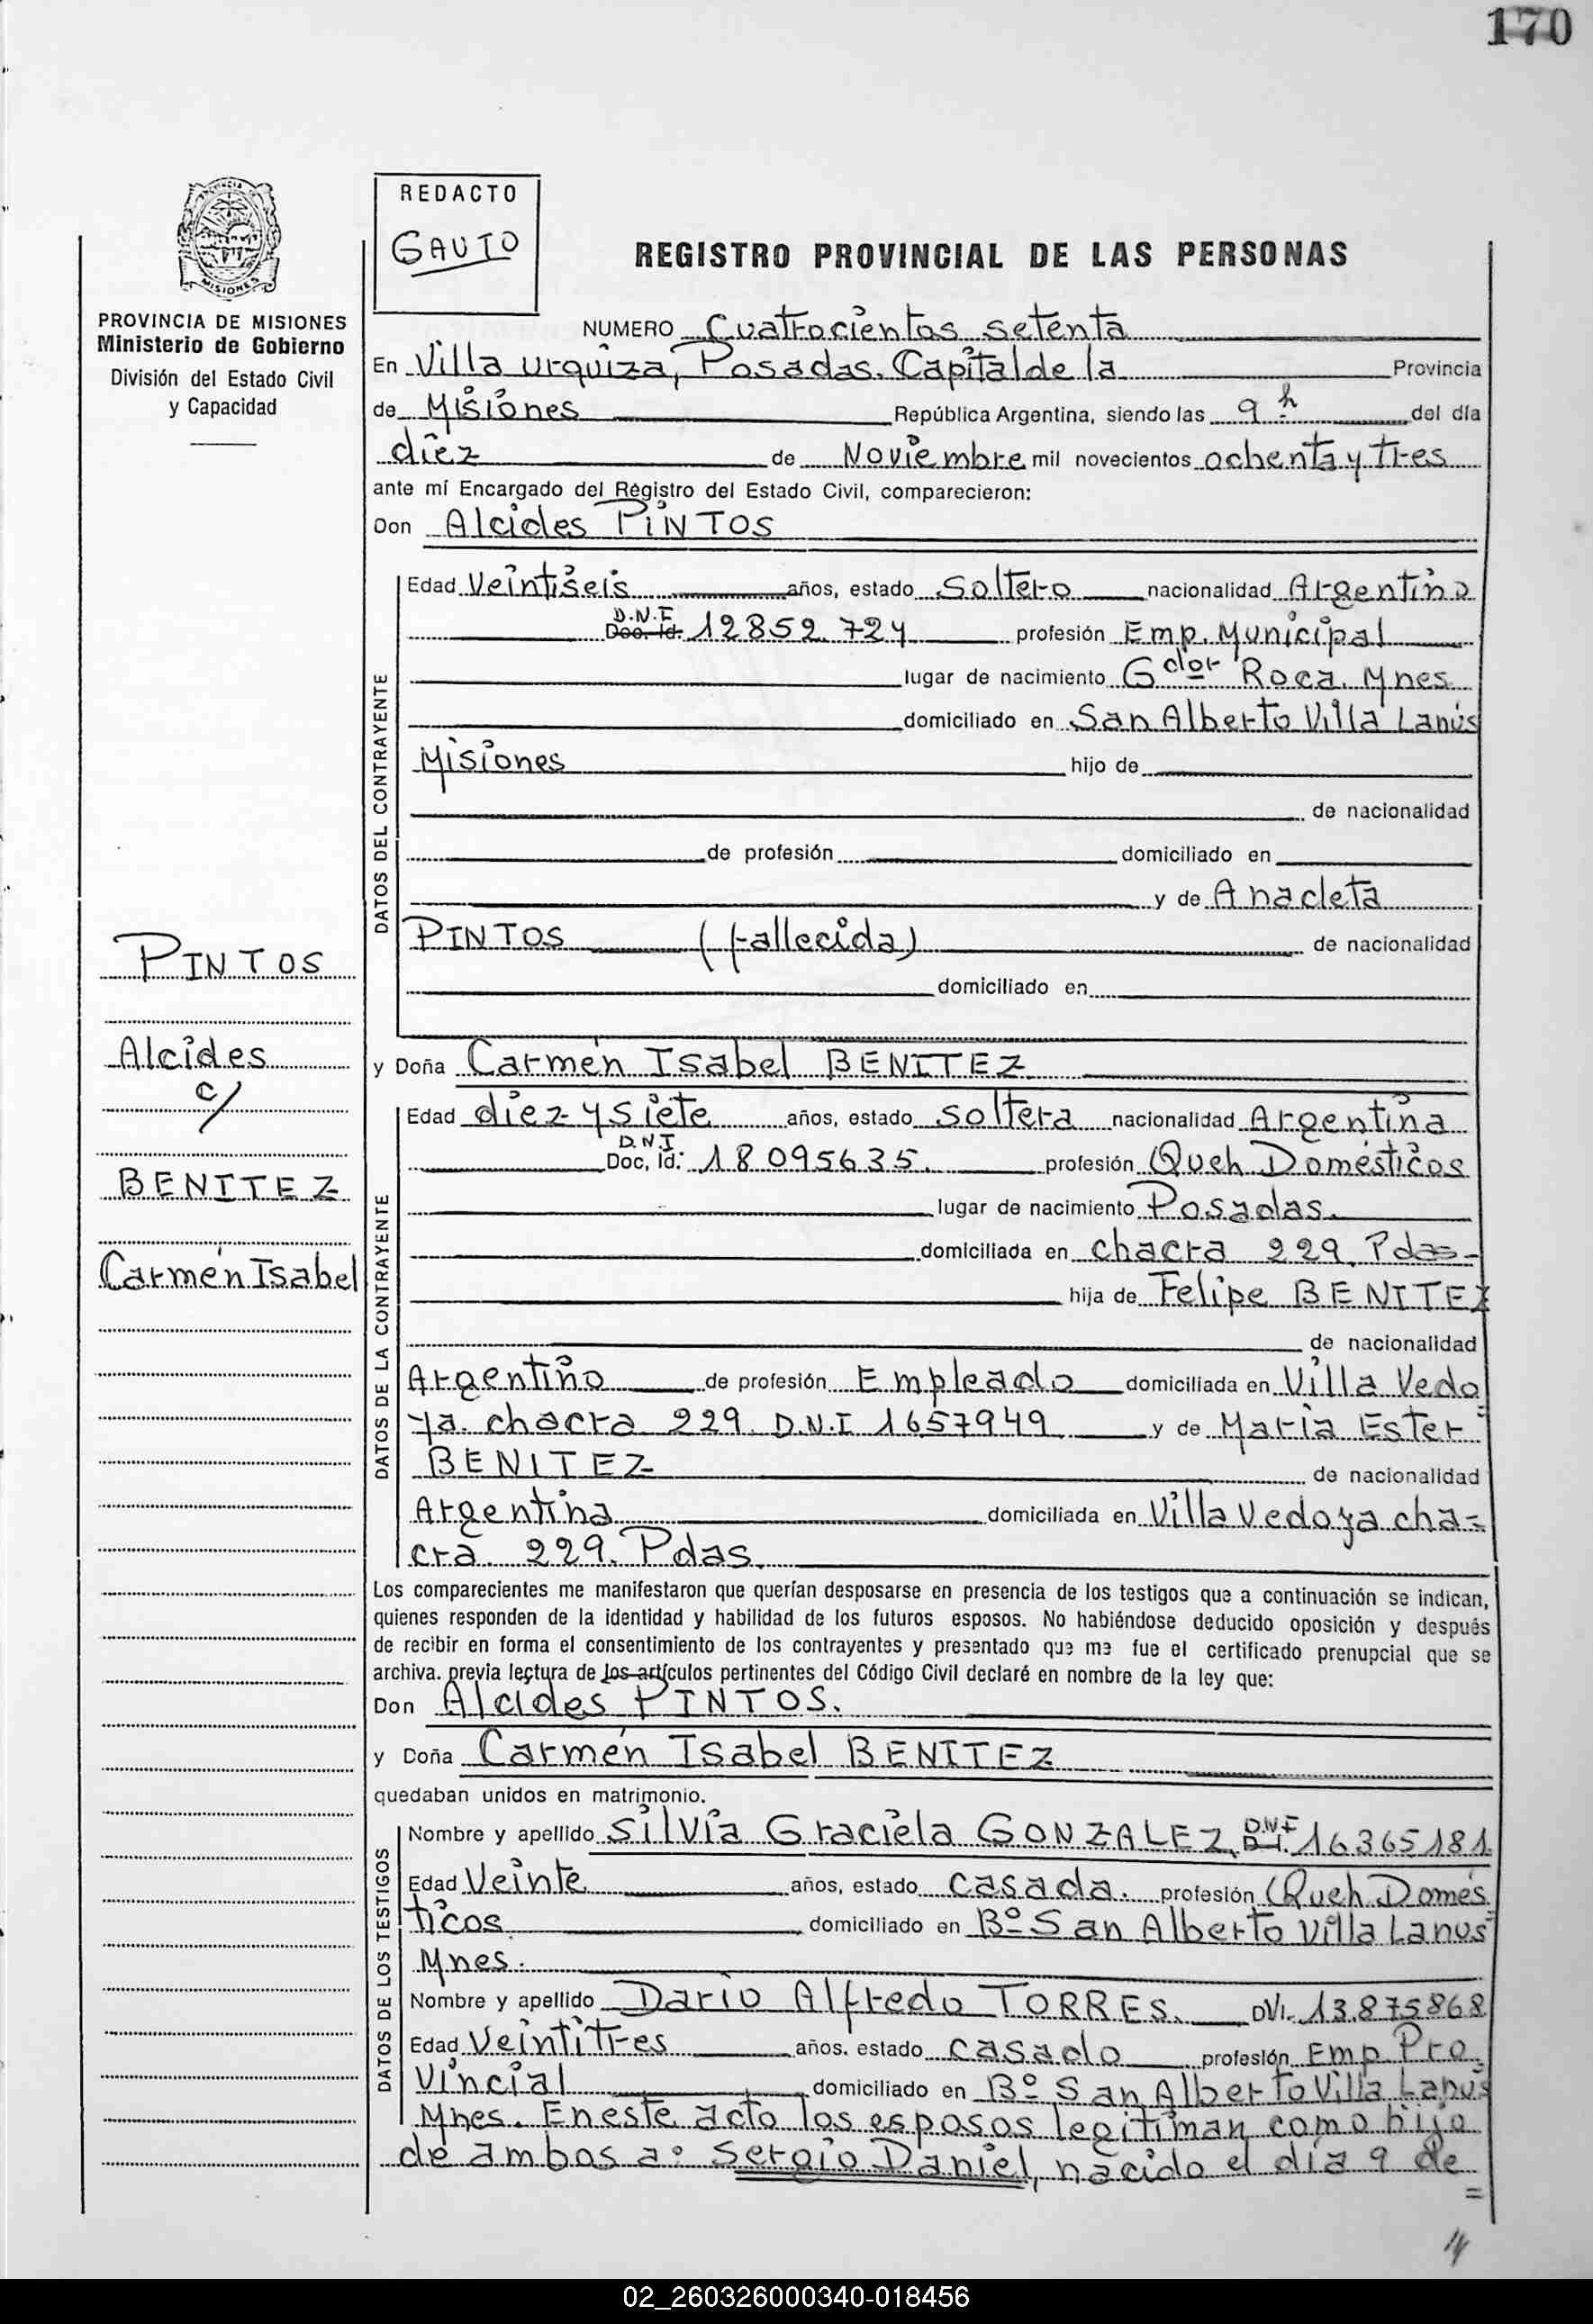 170
REDACTO
GAUTO
REGISTRO PROVINCIAL DE LAS PERSONAS
MISIONES
PROVINCIA DE MISIONES
Ministerio de Gobierno
División del Estado Civil
y Capacidad
PINTOS
Alcides
c/
BENITEZ
Carmen Isabel
NUMERO Cuatrocientos setenta
En Villa urquiza, Posadas. Capital de la Provincia
de Misiones República Argentina, siendo las 9 h del día
diez de Noviembre mil novecientos ochenta y tres
ante mí Encargado del Registro del Estado Civil, comparecieron:
Don Alcides PINTOS
DATOS DEL CONTRAYENTE
Edad Veintiseis años, estado Soltero nacionalidad Argentino
D.N.I
Doc. Id. 12852.724 profesión Emp. Municipal
lugar de nacimiento Gdor Roca. Mnes
domiciliado en San Alberto Villa Lanús
Misiones hijo de
de nacionalidad
de profesión domiciliado en
y de Anacleta
PINTOS (fallecida) de nacionalidad
domiciliado en
y Doña Carmen Isabel BENITEZ
DATOS DE LA CONTRAYENTE
Edad diez y siete años, estado soltera nacionalidad Argentina
D.N.I
Doc. Id. 18095635. profesión Queh Domésticos
lugar de nacimiento Posadas.
domiciliada en chacra 229. Pdas-
hija de Felipe BENITEZ
de nacionalidad
Argentino de profesión Empleado domiciliada en Villa Vedo
ya. chacra 229. D.N.I 1657949 y de Maria Ester
BENITEZ de nacionalidad
Argentina domiciliada en Villa Vedoya cha=
cra 229. Pdas.
Los comparecientes me manifestaron que querían desposarse en presencia de los testigos que a continuación se indican,
quienes responden de la identidad y habilidad de los futuros esposos. No habiéndose deducido oposición y después
de recibir en forma el consentimiento de los contrayentes y presentado que me fue el certificado prenupcial que se
archiva. previa lectura de los artículos pertinentes del Código Civil declaré en nombre de la ley que:
Don Alcides PINTOS.
y Doña Carmen Isabel BENITEZ
quedaban unidos en matrimonio.
DATOS DE LOS TESTIGOS
Nombre y apellido Silvia Graciela GONZALEZ D.N.I 16365181
Edad Veinte años, estado casada. profesión Queh Domés
ticos domiciliado en Bº San Alberto Villa Lanus=
Mnes.
Nombre y apellido Dario Alfredo TORRES. DNI. 13.875868
Edad Veintitres años. estado casado profesión Emp Pro=
Vincial domiciliado en Bº San Alberto Villa Lanús
Mnes. En este acto los esposos legitiman como hijo
de ambos a: Sergio Daniel, nacido el día 9 de
=
02_260326000340-018456